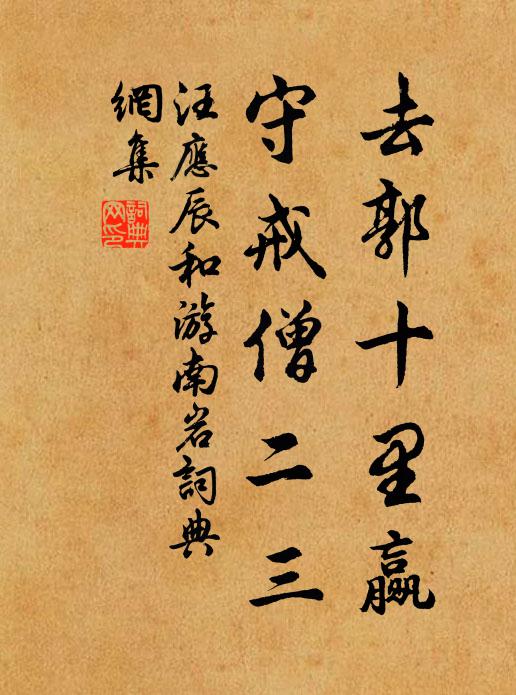 去郭十里贏
守戒僧二三
汪應辰和游南岩詞典
網集
詞典
网印